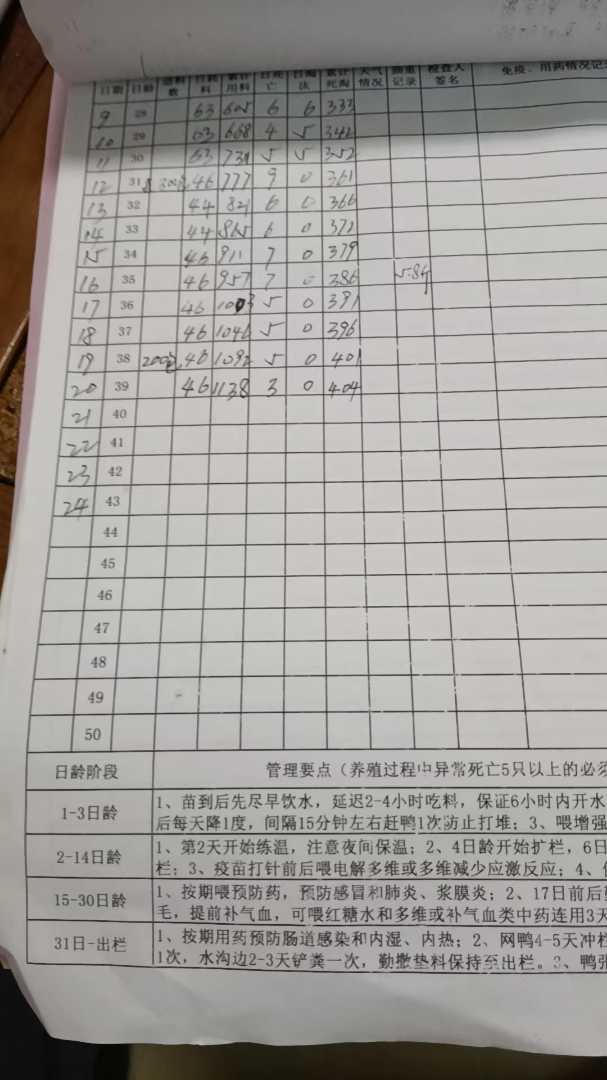 日期 日龄 进料数 日耗料 累计用料 日死亡 日淘汰 累计死淘 天气情况 抽重记录 检查人签名 免疫、用药情况记
9 28 63 605 6 6 333
10 29 63 668 4 5 342
11 30 63 731 5 5 352
12 31 46 777 9 0 361
13 32 44 821 6 0 366
14 33 44 865 6 0 372
15 34 46 911 7 0 379
16 35 46 957 7 0 386
17 36 46 1003 5 0 391
18 37 46 1046 5 0 396
19 38 200包 46 1092 5 0 401
20 39 46 1138 3 0 404
21 40
22 41
23 42
24 43
44
45
46
47
48
49
50
日龄阶段 管理要点（养殖过程中异常死亡5只以上的必须
1-3日龄 1、苗到后先尽早饮水，延迟2-4小时吃料，保证6小时内开水
后每天降1度，间隔15分钟左右赶鸭1次防止打堆；3、喂增强
2-14日龄 1、第2天开始练温，注意夜间保温；2、4日龄开始扩栏，6日
栏；3、疫苗打针前后喂电解多维或多维减少应激反应；4、
15-30日龄 1、按期喂预防药，预防感冒和肺炎、浆膜炎；2、17日前后
毛，提前补气血，可喂红糖水和多维或补气血类中药连用3天
31日-出栏 1、按期用药预防肠道感染和内湿、内热；2、网鸭4-5天冲栏
1次，水沟边2-3天铲粪一次，勤撒垫料保持至出栏。3、鸭张